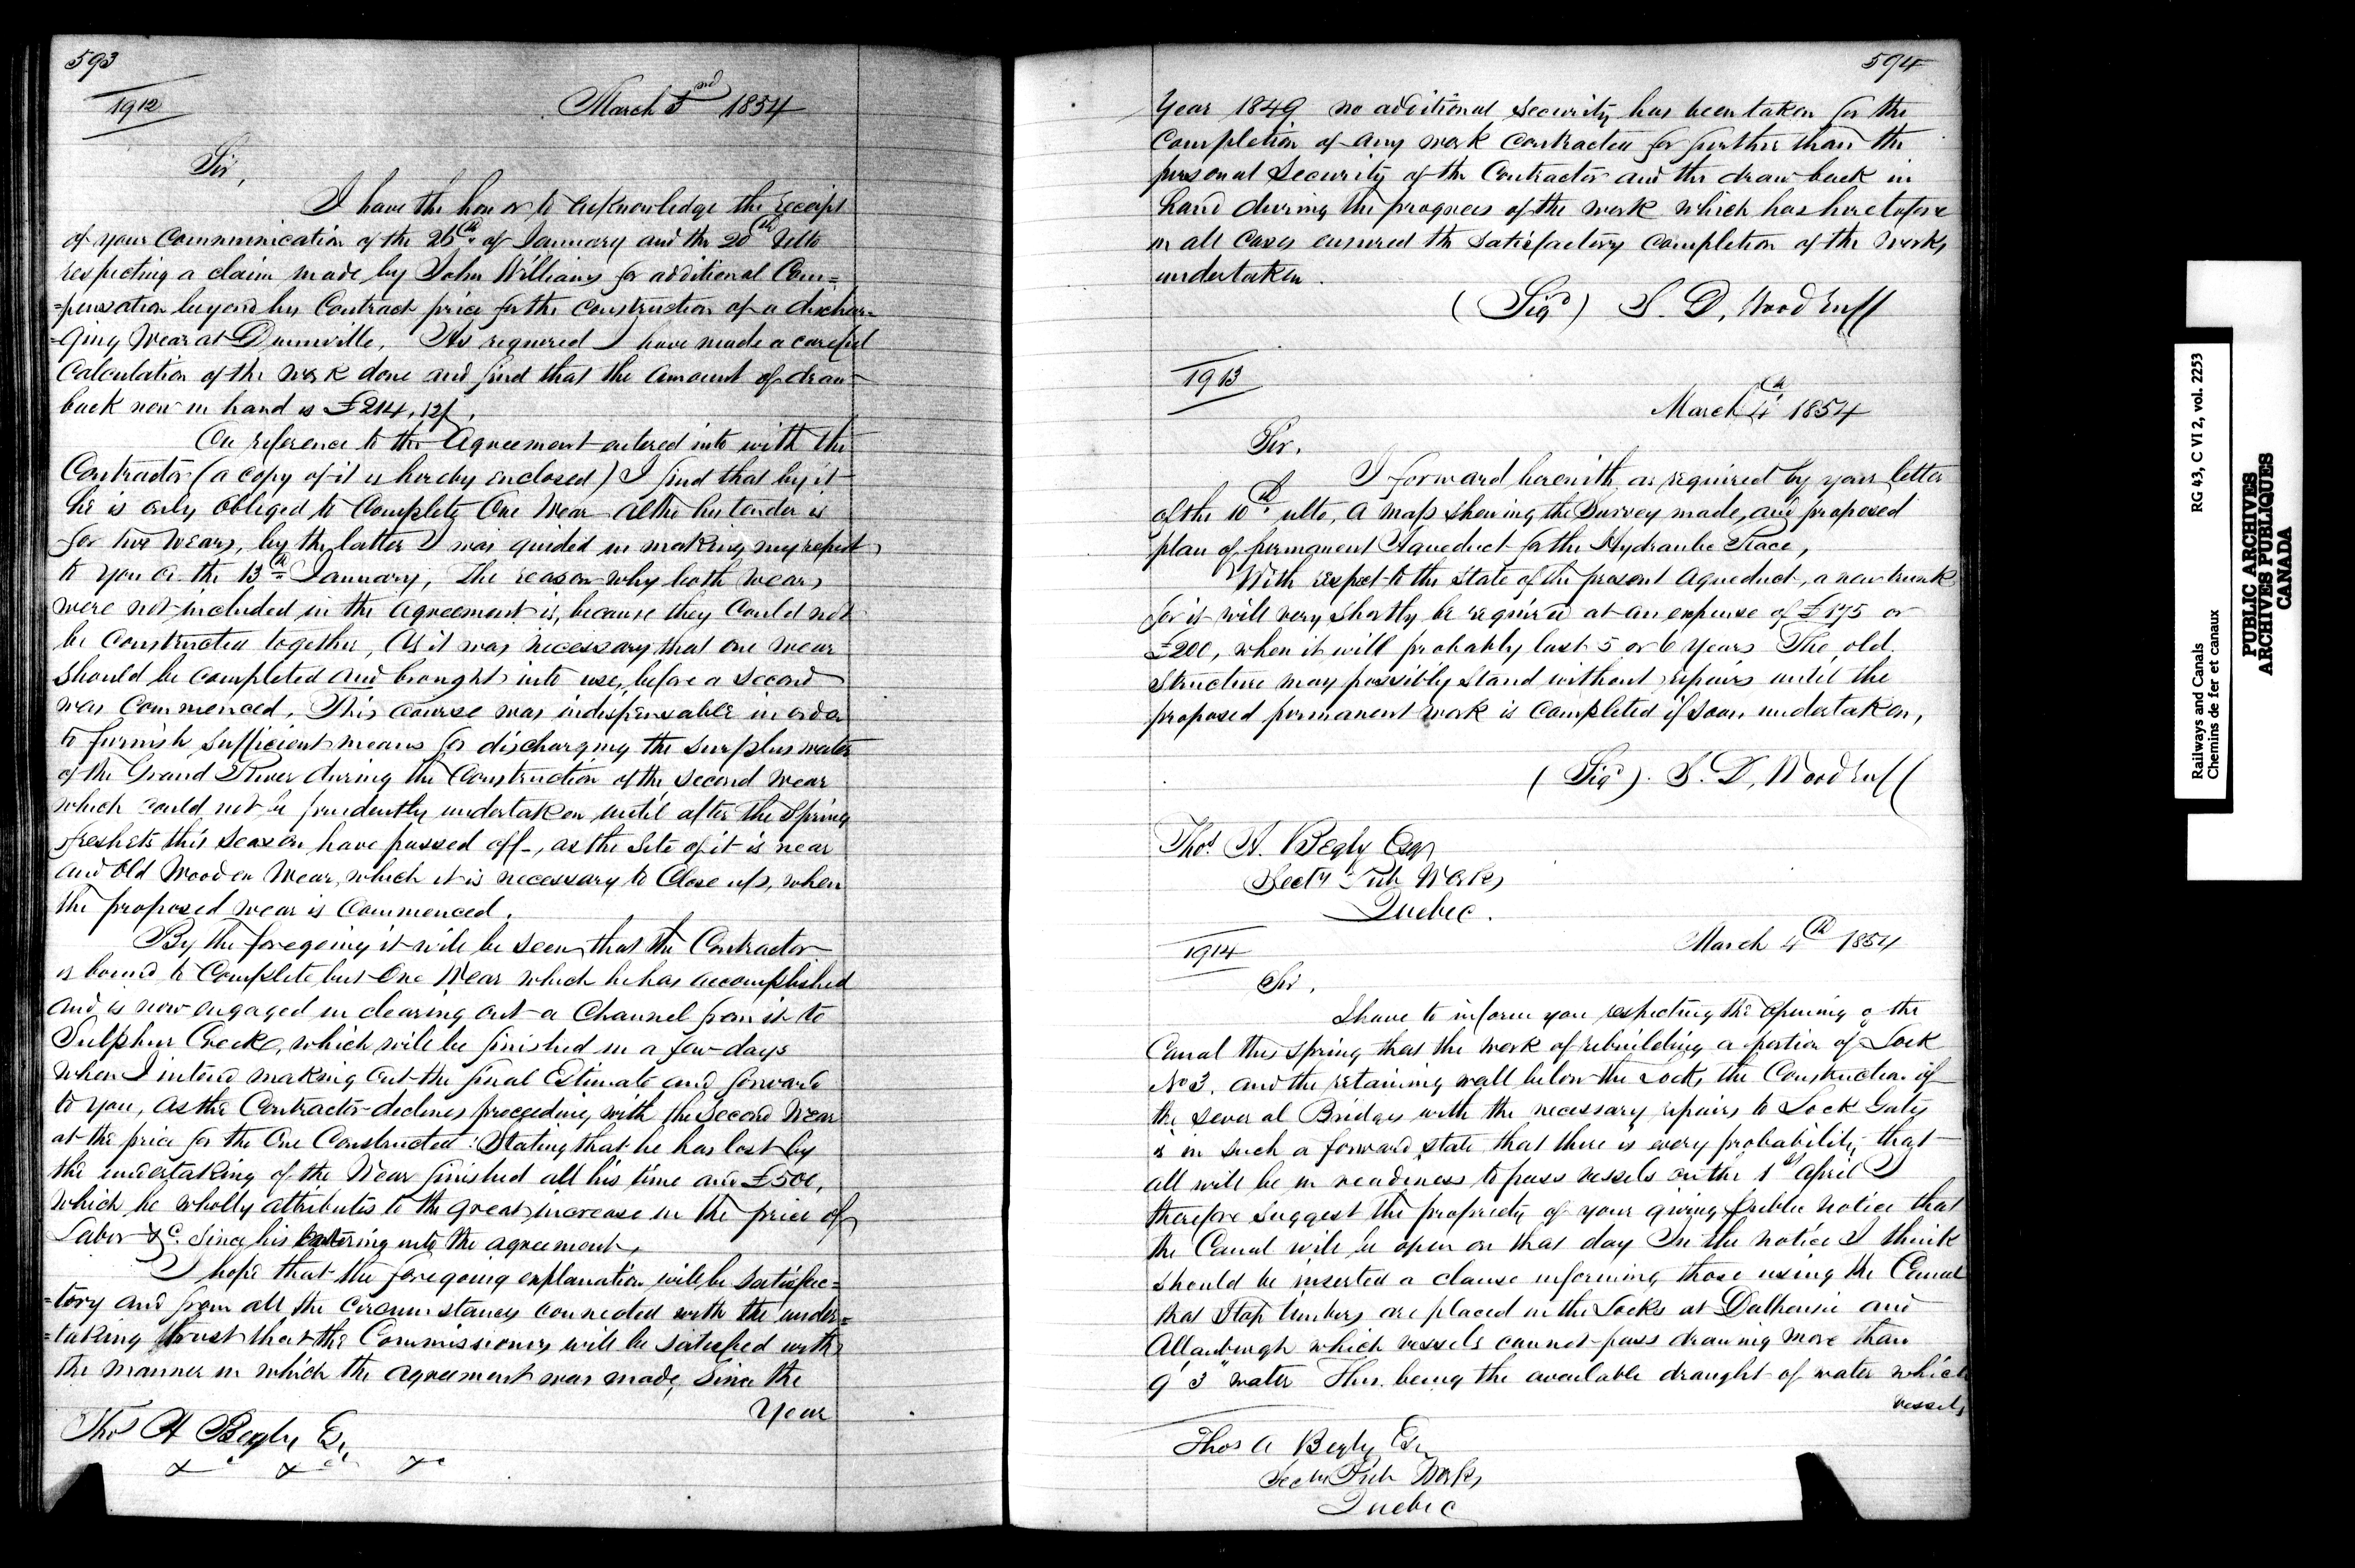 593
1912
March 3rd 1854
Sir,
I have the honor to acknowledge the receipt
of your Communication of the 26th of January and the 20th Ulto
respecting a claim made by John Williams for additional Com=
=pensation beyond his Contract price for the construction of a dischar-
=ging Wear at Dunnville. As required I have made a careful
Calculation of the work done and find that the amount of draw
back now in hand is £214,12/.
On reference to the Agreement entered into with the
Contractor (a copy of it is hereby enclosed) I find that by it
he is only obliged to Complete One Wear altho his tender is
for two Wears, by the latter I was guided in making my report
to you on the 13th January, The reason why both wears
were not included in the agreement is, because they Could not
be Constructed together, As it was necessary that one wear
should be completed and brought into use, before a second
was Commenced, This course was indispensable in order
to furnish sufficient means for discharging the surplus water
of the Grand River during the Construction of the second wear
which could not be prudently undertaken until after the Spring
freshets this season have passed off, as the Site of it is near
and Old Wooden Wear, which it is necessary to Close up, when
the proposed wear is Commenced.
By the foregoing it will be seen that the Contractor
is bound to Complete but One Wear which he has accomplished
and is now engaged in clearing out a Channel from it to
Sulphur Creek, which will be finished in a few days
when I intend making out the final Estimate and forward
to you, As the Contractor declines proceeding with the Second Wear
at the price for the One Constructed: Stating that he has lost by
the undertaking of the Wear finished all his time and £500,
which he wholly attributes to the great increase in the price of
Labor &c. since his entering into the agreement,
I hope that the foregoing explanation will be satisfac=
=tory and from all the Circumstances connected with the under=
=taking trust that the Commissioners will be satisfied with
the manner in which the agreement was made, since the
Year
Thos A Begly Esqr
&c &c &c
594
Year 1849 no additional security has been taken for the
Completion of any work contracted for further than the
personal Security of the Contractor and the draw back in
hand during the progress of the work which has heretofore
in all cases ensured the satisfactory completion of the works
undertaken.
(Sigd) S. D, Woodruff
1913
March 4th 1854
Sir.
I forward herewith as required by your letter
of the 10th ulto, a map showing the Survey made, and proposed
plan of permanent Aqueduct for the Hydraulic Race,
With respect to the state of the present Aqueduct, a new trunk
for it will very shortly be required at an expense of £175 or
£200, when it will probably last 5 or 6 Years The old
Structure may possibly stand without repairs until the
proposed permanent work is completed if soon undertaken,
(Sigd). S. D, Woodruff
Thos. A. Begly Esqr
Secty Pub Works
Quebec.
1914
March 4th 1854
Sir,
I have to inform you respecting the opening of the
Canal this spring that the work of rebuilding a portion of Lock
No 3. and the retaining wall below the Lock, the Construction of
the several Bridges with the necessary repairs to Lock Gates
is in such a forward state that there is every probability that
all will be in readiness to pass vessels on the 1st April I
therefore suggest the propriety of your giving public notice that
the Canal will be open on that day In the notice I think
should be inserted a clause informing those using the Canal
that Stop timbers are placed in the Locks at Dalhousie and
Allanburgh which vessels cannot pass drawing more than
9' 3" water This being the available draught of water which
vessels
Thos A Begly Esqr
Secty Pub Works
Quebec
Railways and Canals RG 43, C VI 2, vol. 2253
Chemins de fer et canaux
PUBLIC ARCHIVES
ARCHIVES PUBLIQUES
CANADA